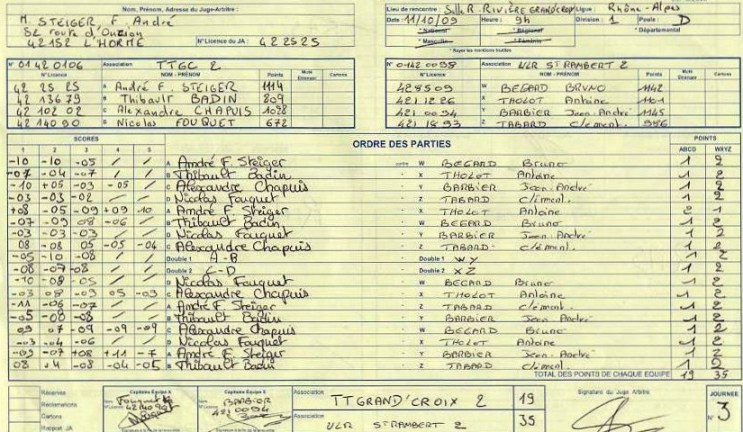 Nom, Prénom, Adresse du Juge-Arbitre :
M. STEIGER, F. André
52 route d'Onzion
42152 L'HORME N°Licence du JA : 422525
Lieu de rencontre : Salle R. RIVIÈRE GRAND'CROIX Ligue : Rhône-Alpes
Date 11/10/09 Heure : 9h Division : 1 Poule : D
* National * Régional * Départemental
* Masculin * Féminin
* Rayer les mentions inutiles
N° 01420106 Association TTGC 2
N°Licence NOM - PRÉNOM Points Cartons
42 25 25 A André F. STEIGER 1114
42 136 79 B Thibault BADIN 809
42 102 02 C Alexandre CHAPUIS 1028
42 140 90 D Nicolas FOUQUET 672
N° 0420098 Association ULR ST RAMBERT 2
N°Licence NOM - PRÉNOM Points Cartons
428509 W BEGARD BRUNO 1142
421 1226 X THOLOT Antoine 1101
421 0094 Y BARBIER Jean-André 1145
421 1893 Z TABARD Clément 986
SCORES ORDRE DES PARTIES POINTS
1 2 3 4 5 ABCD WXYZ
-10 -10 -05 / / A André F. Steiger W BEGARD Bruno 1 2
-07 -04 -07 / / B Thibault Badin X THOLOT Antoine 1 2
-10 +05 -03 -05 / C Alexandre Chapuis Y BARBIER Jean-André 1 2
-03 -03 -02 / / D Nicolas Fouquet Z TABARD Clément 1 2
+08 -05 -09 +09 10 A André F. Steiger X THOLOT Antoine 2 1
-07 -09 08 -06 / B Thibault Badin W BEGARD Bruno 1 2
-03 -03 -03 / / D Nicolas Fouquet Y BARBIER Jean-André 1 2
08 -08 05 -05 -06 C Alexandre Chapuis Z TABARD Clément 1 2
-05 -10 -08 / / Double 1 A-B Double 1 WY 1 2
-08 -07 -08 / / Double 2 C-D Double 2 XZ 1 2
-10 -08 -05 / / D Nicolas Fouquet W BEGARD Bruno 1 2
-03 08 -03 05 -03 C Alexandre Chapuis X THOLOT Antoine 1 2
-11 -06 -07 / / A André F Steiger Z TABARD Clément 1 2
-05 -08 -08 / / B Thibault Badin Y BARBIER Jean-André 1 2
09 07 -09 -09 -09 C Alexandre Chapuis W BEGARD Bruno 1 2
-03 -04 -06 / / D Nicolas Fouquet X THOLOT Antoine 1 2
-09 -07 +08 +11 -7 A André F Steiger Y BARBIER Jean-André 1 2
08 +4 -08 -04 -05 B Thibault Badin Z TABARD Clément 1 2
TOTAL DES POINTS DE CHAQUE ÉQUIPE 19 35
Réserves
Réclamations
Cartons
Rapport JA
Capitaine Équipe A
Fouquet
4214090
Capitaine Équipe
BARBIER
4210094
Association TTGRAND'CROIX 2 19
Association ULR ST RAMBERT 2 35
Signature du Juge Arbitre
JOURNÉE
N° 3